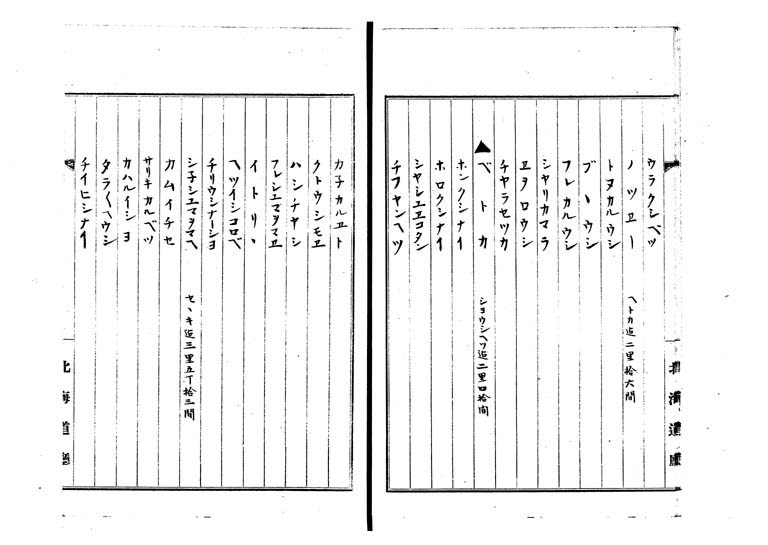 ウラクシベツ
ノツヱー　ヘトカ迄二里拾六間
トヌカルウシ
ブヽウシ
フレカルウシ
シヤリカマラ
ヱヲロウシ
チヤラセツカ
▲ベトカ　シヨウシヘツ迄二里四拾間
ホンクシナイ
ホロクシナイ
シヤシエヱコタン
チフヤンヘツ
北海道廳
カ子カルヱト
クトウシモヱ
ハシチヤシ
フレシエマヲマヱ
イトリヽ
ヘツイシコロベ
チリウシナーシヨ
シ子シエマヲマヘ　セヽキ迄三里五丁拾三間
カムイチセ
サリキカルベツ
カハルイショ
タラ〱ヘウシ
チイヒシナイ
北海道廳